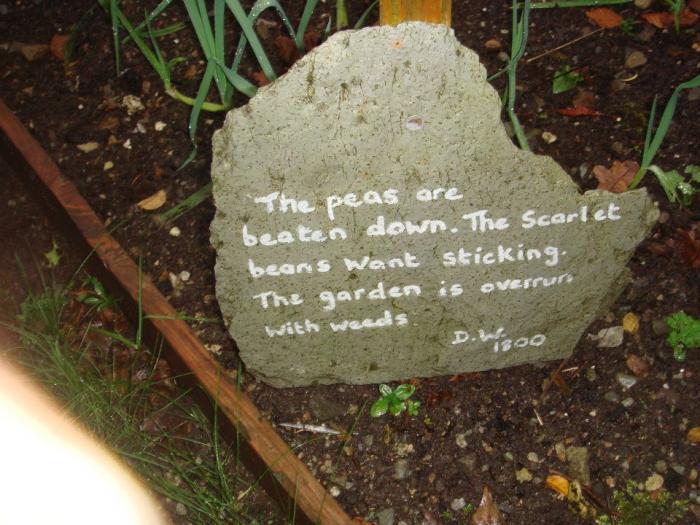 The peas are
beaten down. The Scarlet
beans want sticking.
The garden is overrun
with weeds.
D.W.
1800